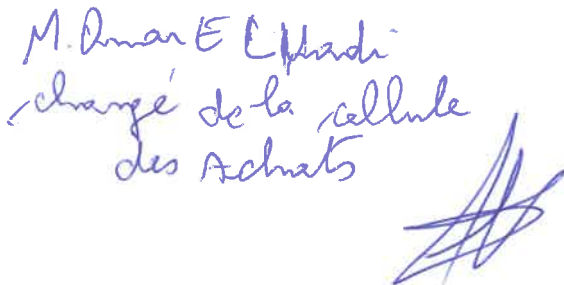 M. Omar EL Hadi
chargé de la cellule
des Achats